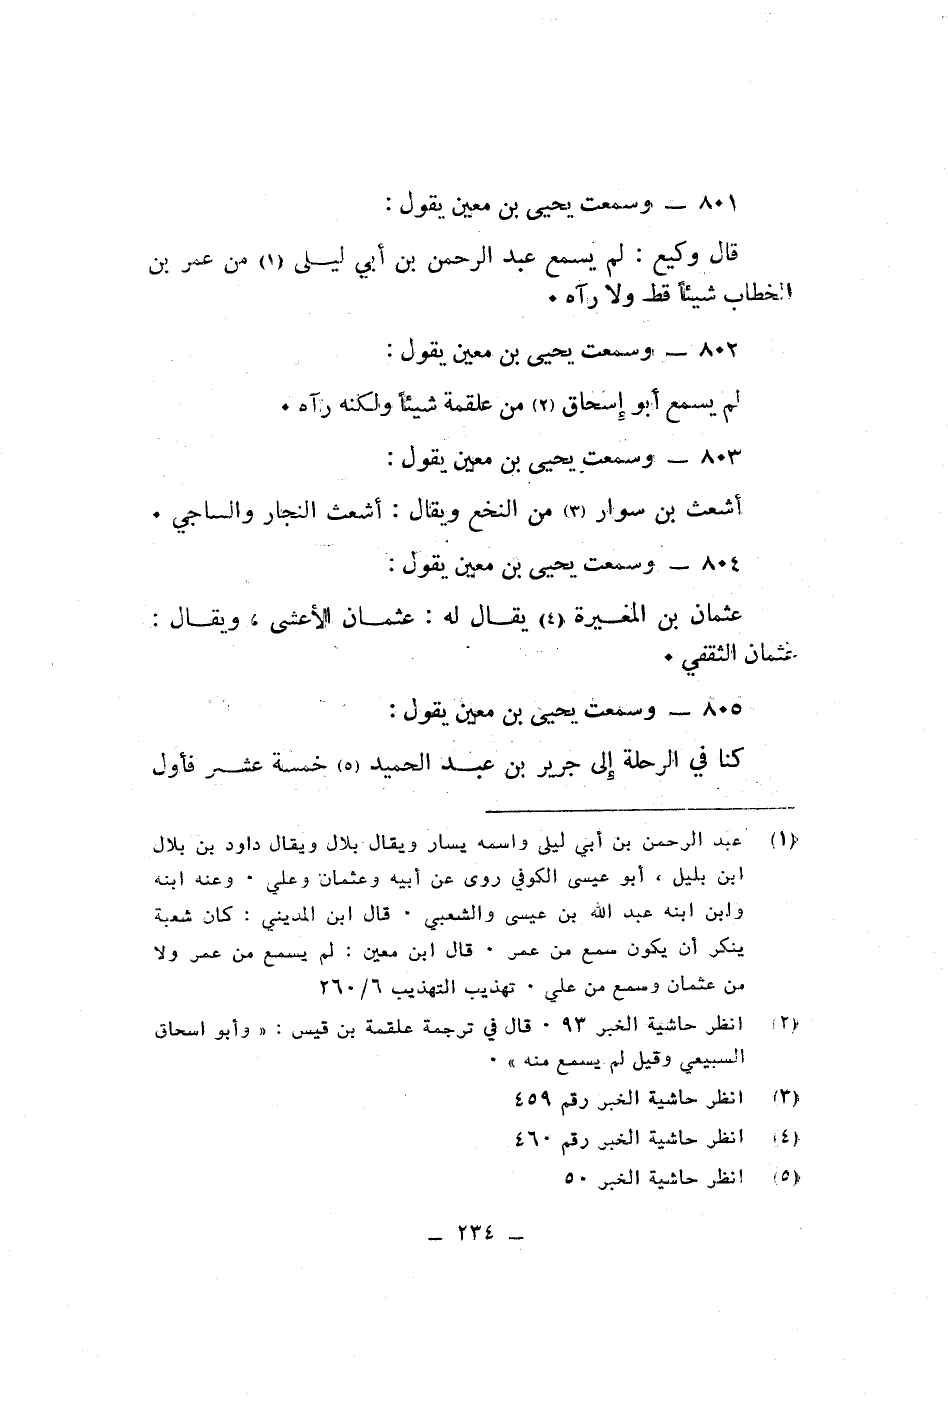 ٨٠١ ــ وسمعت يحيى بن معين يقول :
قال وكيع : لم يسمع عبد الرحمن بن أبي ليـلى (١) من عمر بن
الخطاب شيئاً قط ولا رآه .
٨٠٢ ــ وسمعت يحيى بن معين يقول :
لم يسمع أبو إسحاق (٢) من علقمة شيئاً ولكنه رآه .
٨٠٣ ــ وسمعت يحيى بن معين يقول :
أشعث بن سوار (٣) من النخع ويقال : أشعث النجار والساجي .
٨٠٤ ــ وسمعت يحيى بن معين يقول :
عثمان بن المغـيرة (٤) يقـال له : عثمـان الأعشى ، ويقـال :
عثمان الثقفي .
٨٠٥ ــ وسمعت يحيى بن معين يقول :
كنا في الرحلة إلى جرير بن عبـد الحميد (٥) خمسة عشـر فأول
(١) عبد الرحمن بن أبي ليلى واسمه يسار ويقال بلال ويقال داود بن بلال
ابن بليل ، أبو عيسى الكوفي روى عن أبيه وعثمان وعلي . وعنه ابنه
وابن ابنه عبد الله بن عيسى والشعبي . قال ابن المديني : كان شعبة
ينكر أن يكون سمع من عمر . قال ابن معين : لم يسمع من عمر ولا
من عثمان وسمع من علي . تهذيب التهذيب ٢٦٠/٦
(٢) انظر حاشية الخبر ٩٣ . قال في ترجمة علقمة بن قيس : « وأبو اسحاق
السبيعي وقيل لم يسمع منه » .
(٣) انظر حاشية الخبر رقم ٤٥٩
(٤) انظر حاشية الخبر رقم ٤٦٠
(٥) انظر حاشية الخبر ٥٠
ــ ٢٣٤ ــ